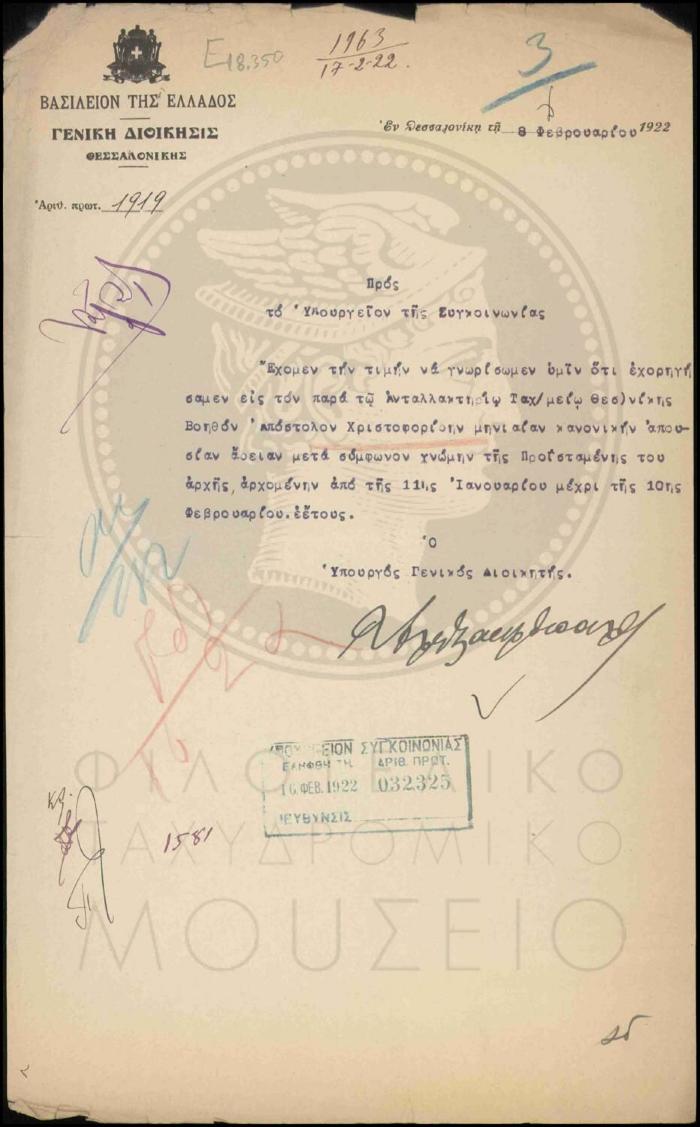 Ε18.350
1963
17-2-22.
3
ΒΑΣΙΛΕΙΟΝ ΤΗΣ ΕΛΛΑΔΟΣ
ΓΕΝΙΚΗ ΔΙΟΙΚΗΣΙΣ
ΘΕΣΣΑΛΟΝΙΚΗΣ
Ἐν Θεσσαλονίκῃ τῇ 8 Φεβρουαρίου 1922
Ἀριθ. πρωτ. 1919
Πρός
τό Ὑπουργεῖον τῆς Συγκοινωνίας
Ἔχομεν τήν τιμήν νά γνωρίσωμεν ὑμῖν ὅτι ἐχορηγή
σαμεν εἰς τόν παρά τῷ Ἀνταλλακτηρίῳ Ταχ/μείῳ Θεσ)νίκης
Βοηθόν Ἀπόστολον Χριστοφορίδην μηνιαίαν κανονικήν ἀπου-
σίαν ἄδειαν μετά σύμφωνον γνώμην τῆς Προϊσταμένης του
ἀρχῆς, ἀρχομένην ἀπό τῆς 11ης Ἰανουαρίου μέχρι τῆς 10ης
Φεβρουαρίου.ἐἔτους.
Ὁ
Ὑπουργός Γενικός Διοικητής.
ΥΠΟΥΡΓΕΙΟΝ ΣΥΓΚΟΙΝΩΝΙΑΣ
ΕΛΗΦΘΗ ΤΗ ΑΡΙΘ. ΠΡΩΤ.
16.ΦΕΒ.1922 032325
ΙΕΥΘΥΝΣΙΣ
1581
ΦΙΛΟΤΕΛΙΚΟ
ΤΑΧΥΔΡΟΜΙΚΟ
ΜΟΥΣΕΙΟ